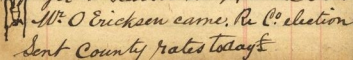 Mr O Ericksen came, Re Co. election
Sent County rates today